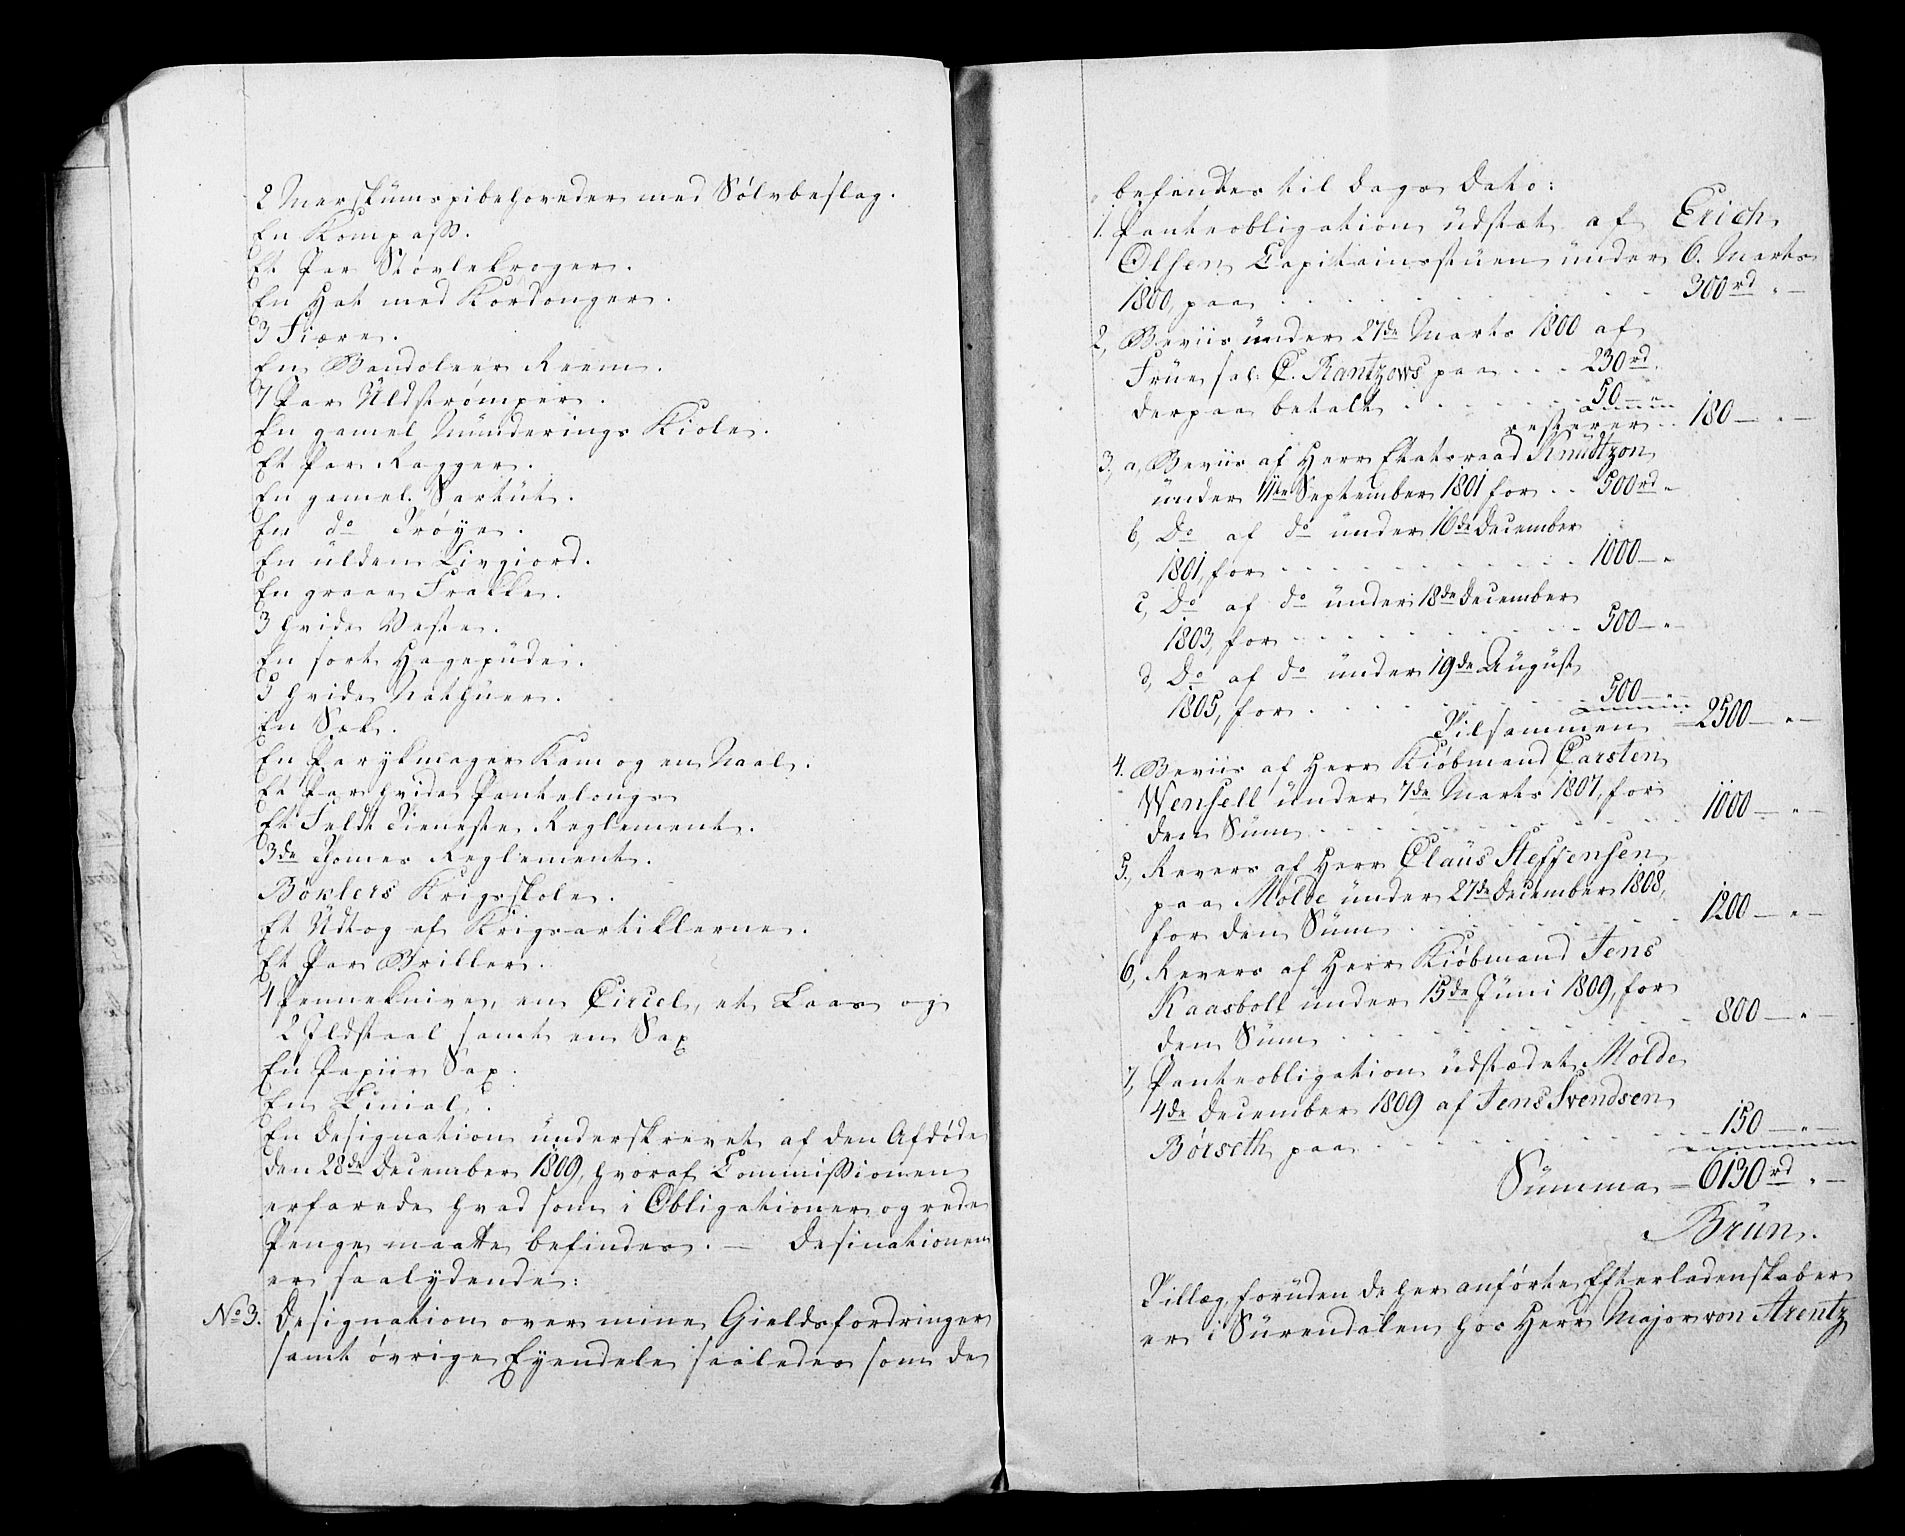 2 Merskumspibehoveder med Sølvbeslag.
En Kompass.
Et Par Støvlekroger.
En Hat med Kordonger.
3 Fiære.
En Bandoleer Reem.
7 Par Uldstrømper.
En gamel Munderings Kiole.
Et Par Ragger.
En gamel Sartut.
En do Trøye.
En ulden Livgiord.
En graae Frakke.
3 hvide Veste.
En sort Hagepude.
5 hvide Nathuer.
En Sæk.
En Parykmager Kam og en Naal.
Et Par hvide Pantelongs
Et Feldt Tieneste Reglement.
3de Ihomes Reglement.
Böklers Krigsskole.
Et Udtog af Krigsartiklerne.
Et Par Briller.
4 Penneknive, en Circel, et Laas og
2 Ildstaal samt en Sax
En Papiir Sax.
En Linial.
En Designation underskrevet af den Afdøde
den 28de December 1809, hvoraf Commissionen
erfarede hvad som i Obligationer og rede
Penge maatte befindes. — Desinationen
er saalydende:
No 3. Designation over mine Gieldsfordringer
samt øvrige Eyendele saaledes som de
befindtes til Dags Dato:
1. Panteobligation udstæt af Erich
Olsen Capitainsstuen under 6. Marts
1800, paa . . . . 300 rd " —
2, Beviis under 27de Marts 1800 af
Frue sal: C. Rantzows paa . . . 230 rd.
derpaa betalt . . . . 50 — "
resterer . . 180 — " —
3, a, Beviis af Herr Etatsraad Knudtzon
under 11te September 1801 for . . 500 rd "
b, Do af do under 16de December
1801, for . . . . 1000 — "
c, Do af do under 18de December
1803, for . . . . 500 — "
d, Do af do under 19de August
1805, for . . . . 500 — "
Tilsammen — 2500 — " —
4. Beviis af Herr Kiøbmand Carsten
Wensell under 7de Marts 1807, for
den Sum . . . . 1000 — " —
5., Revers af Herr Claus Steffensen
paa Molde under 27de December 1808,
for den Sum . . . . 1200 — " —
6, Revers af Herr Kiøbmand Jens
Kaasboll under 15de Juni 1809, for
den Sum . . . . 800 — " —
7, Panteobligation udstædet Molde
4de December 1809 af Jens Svendsen
Børseth paa . . . . 150 — " —
Summa — 6130 rd " —
Brun.
Tillæg, foruden de her anførte Efterladenskaber
er i Surendalen hos Herr Major von Arentz